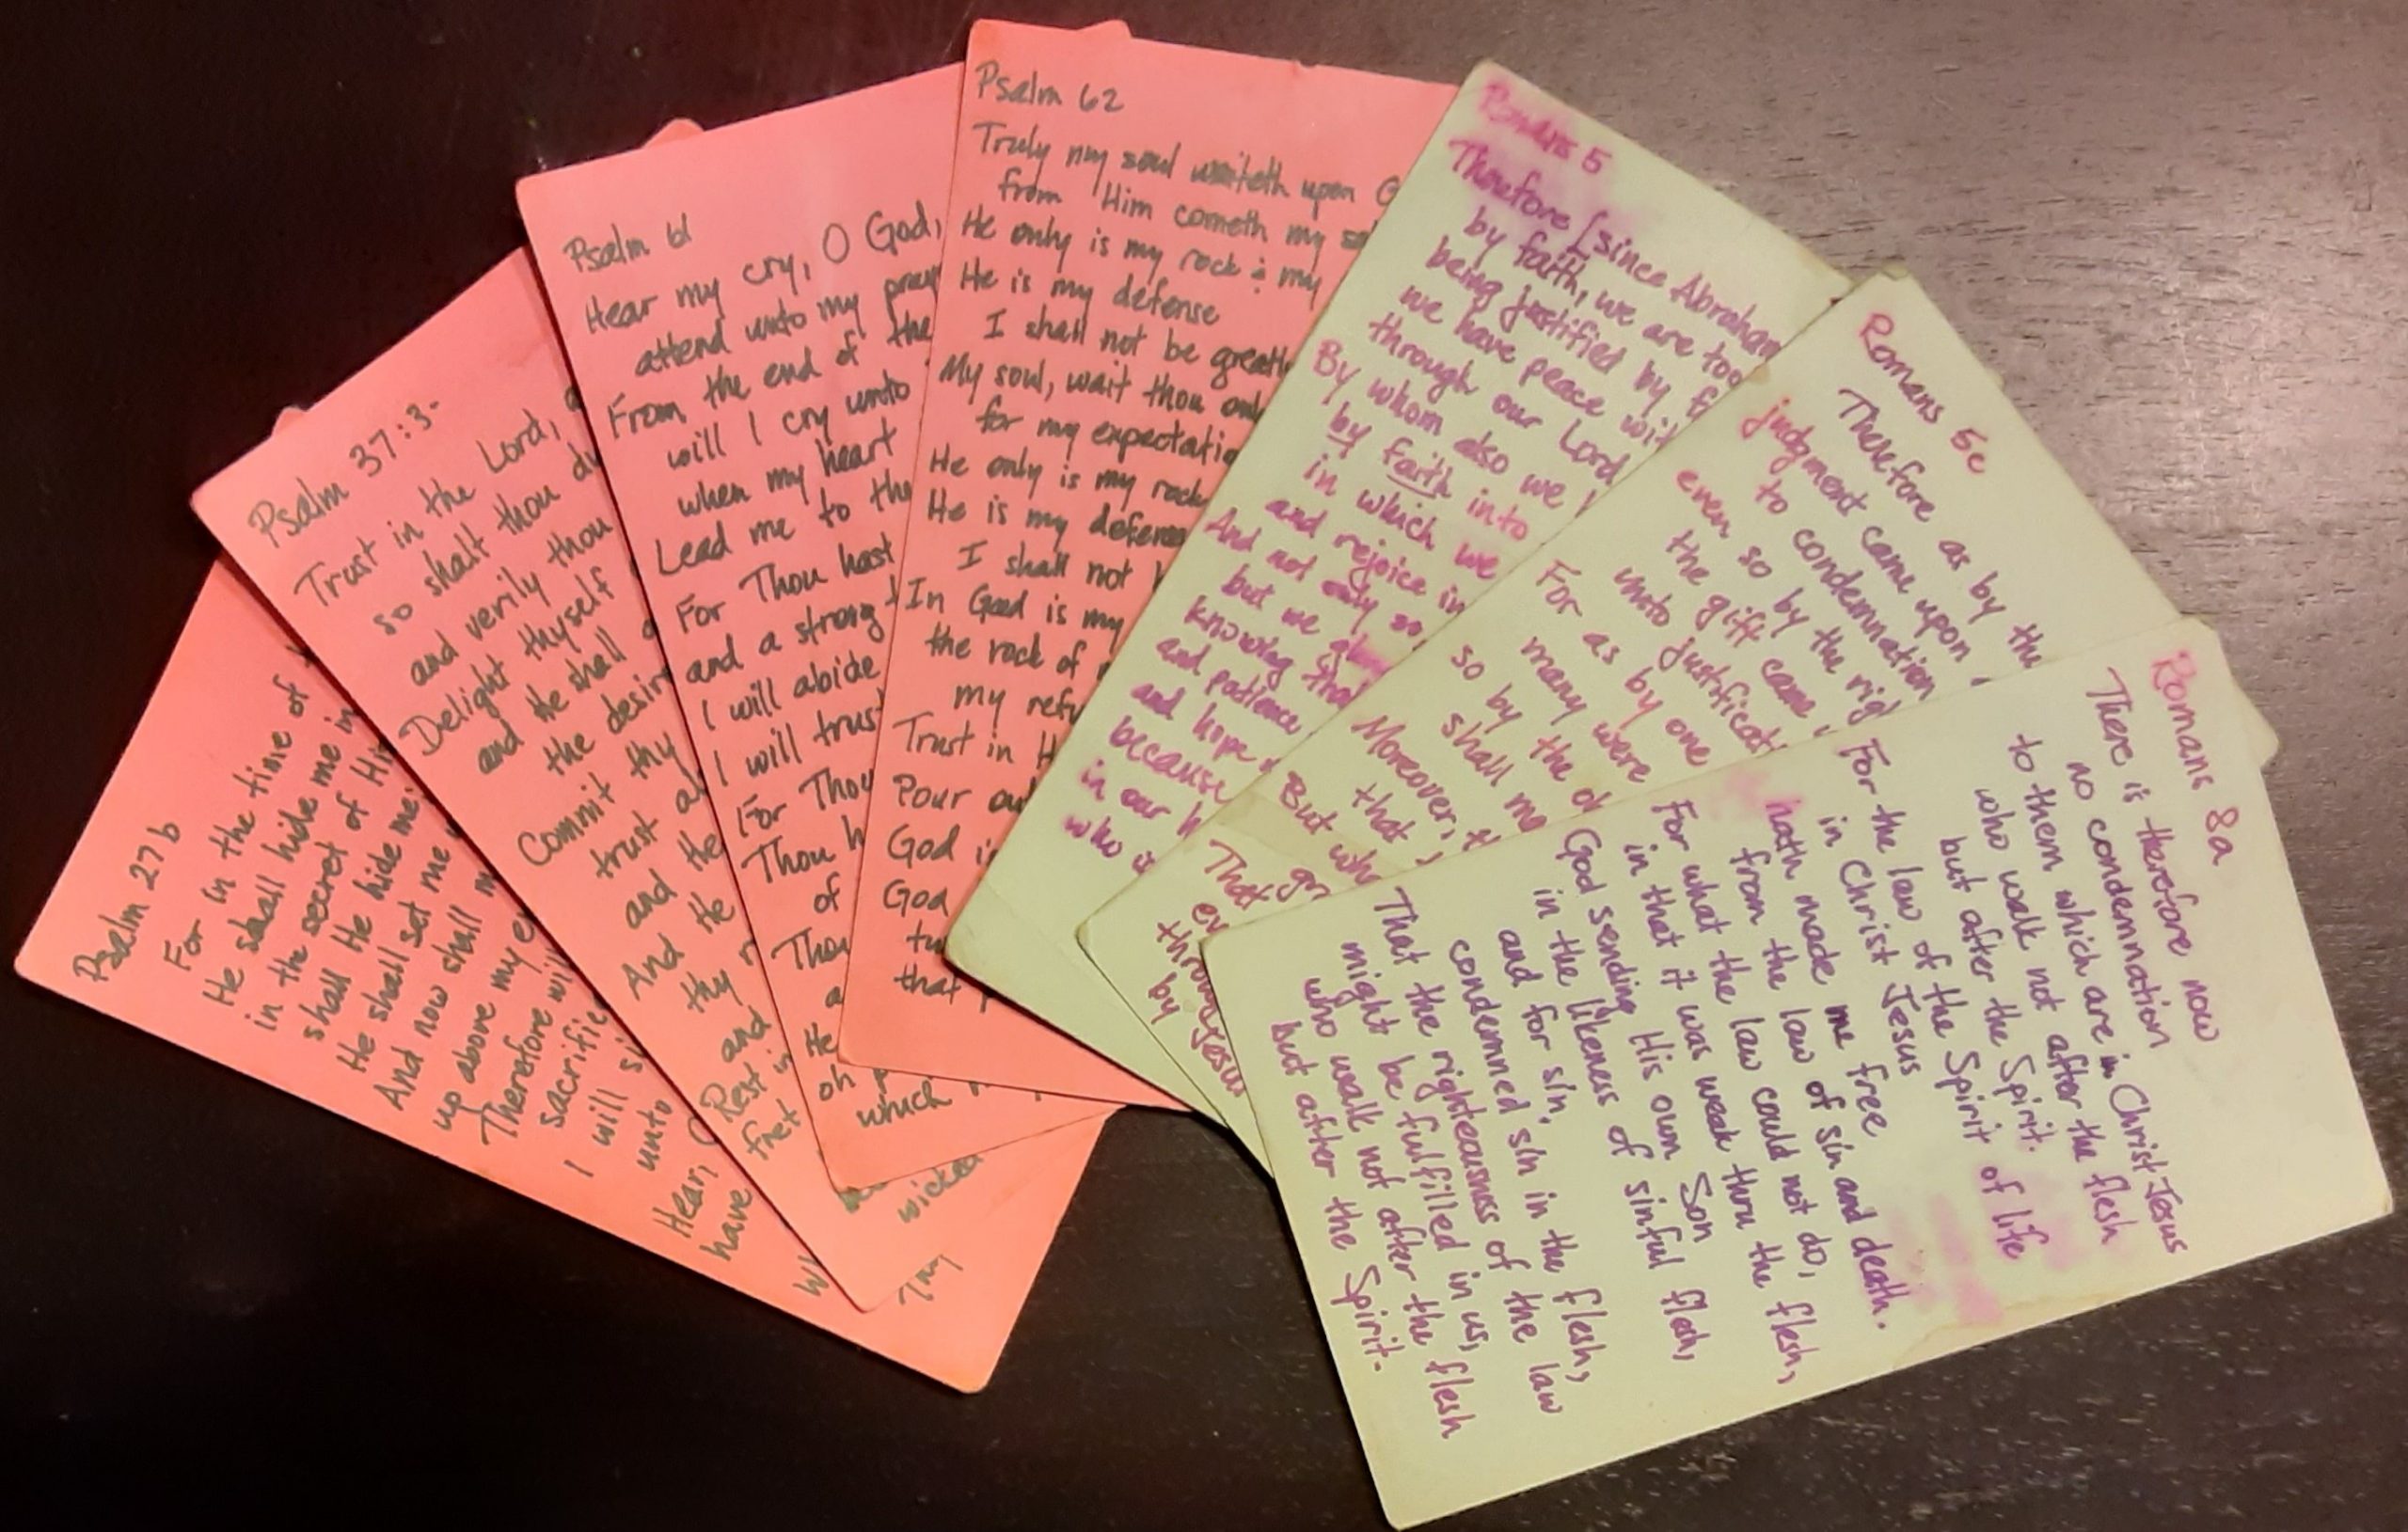 Psalm 27b
For in the time of
He shall hide me in
in the secret of His
shall He hide me;
He shall set me
And now shall m
up above my e
Therefore will
sacrifice
I will si
unto
Hear, O
have
Wh
Psalm 37:3-
Trust in the Lord, a
so shalt thou dw
and verily thou
Delight thyself
and He shall
the desire
Commit thy
trust al
and He
And He
thy r
and
Rest in
fret
wicked
Thy
Psalm 61
Hear my cry, O God,
attend unto my pray
From the end of the
will I cry unto
when my heart
Lead me to the
For Thou hast
and a strong t
I will abide
I will trust
For Thou
Thou h
of
Thou
a
He
oh
which
Psalm 62
Truly my soul waiteth upon G
from Him cometh my sa
He only is my rock & my
He is my defense
I shall not be greatly
My soul, wait thou only
for my expectatio
He only is my rock
He is my defense
I shall not b
In God is my
the rock of
my refu
Trust in H
Pour out
God is
God
tw
that p
Romans 5
Therefore [since Abraham
by faith, we are too
being justified by f
we have peace wit
through our Lord
By whom also we
by faith into
in which we
and rejoice in
And not only so
but we glory
knowing that
and patience
and hope
because
in our h
who is
Romans 5c
Therefore as by the
judgment came upon
to condemnation
even so by the rig
the gift came
unto justificati
For as by one
many were
so by the ob
shall me
Moreover, t
that
But whe
gr
That
ev
through Jesus
by
Romans 8a
There is therefore now
no condemnation
to them which are in Christ Jesus
who walk not after the flesh
but after the Spirit.
For the law of the Spirit of life
in Christ Jesus
hath made me free
from the law of sin and death.
For what the law could not do,
in that it was weak thru the flesh,
God sending His own Son
in the likeness of sinful flesh,
and for sin,
condemned sin in the flesh,
That the righteousness of the law
might be fulfilled in us,
who walk not after the flesh
but after the Spirit.